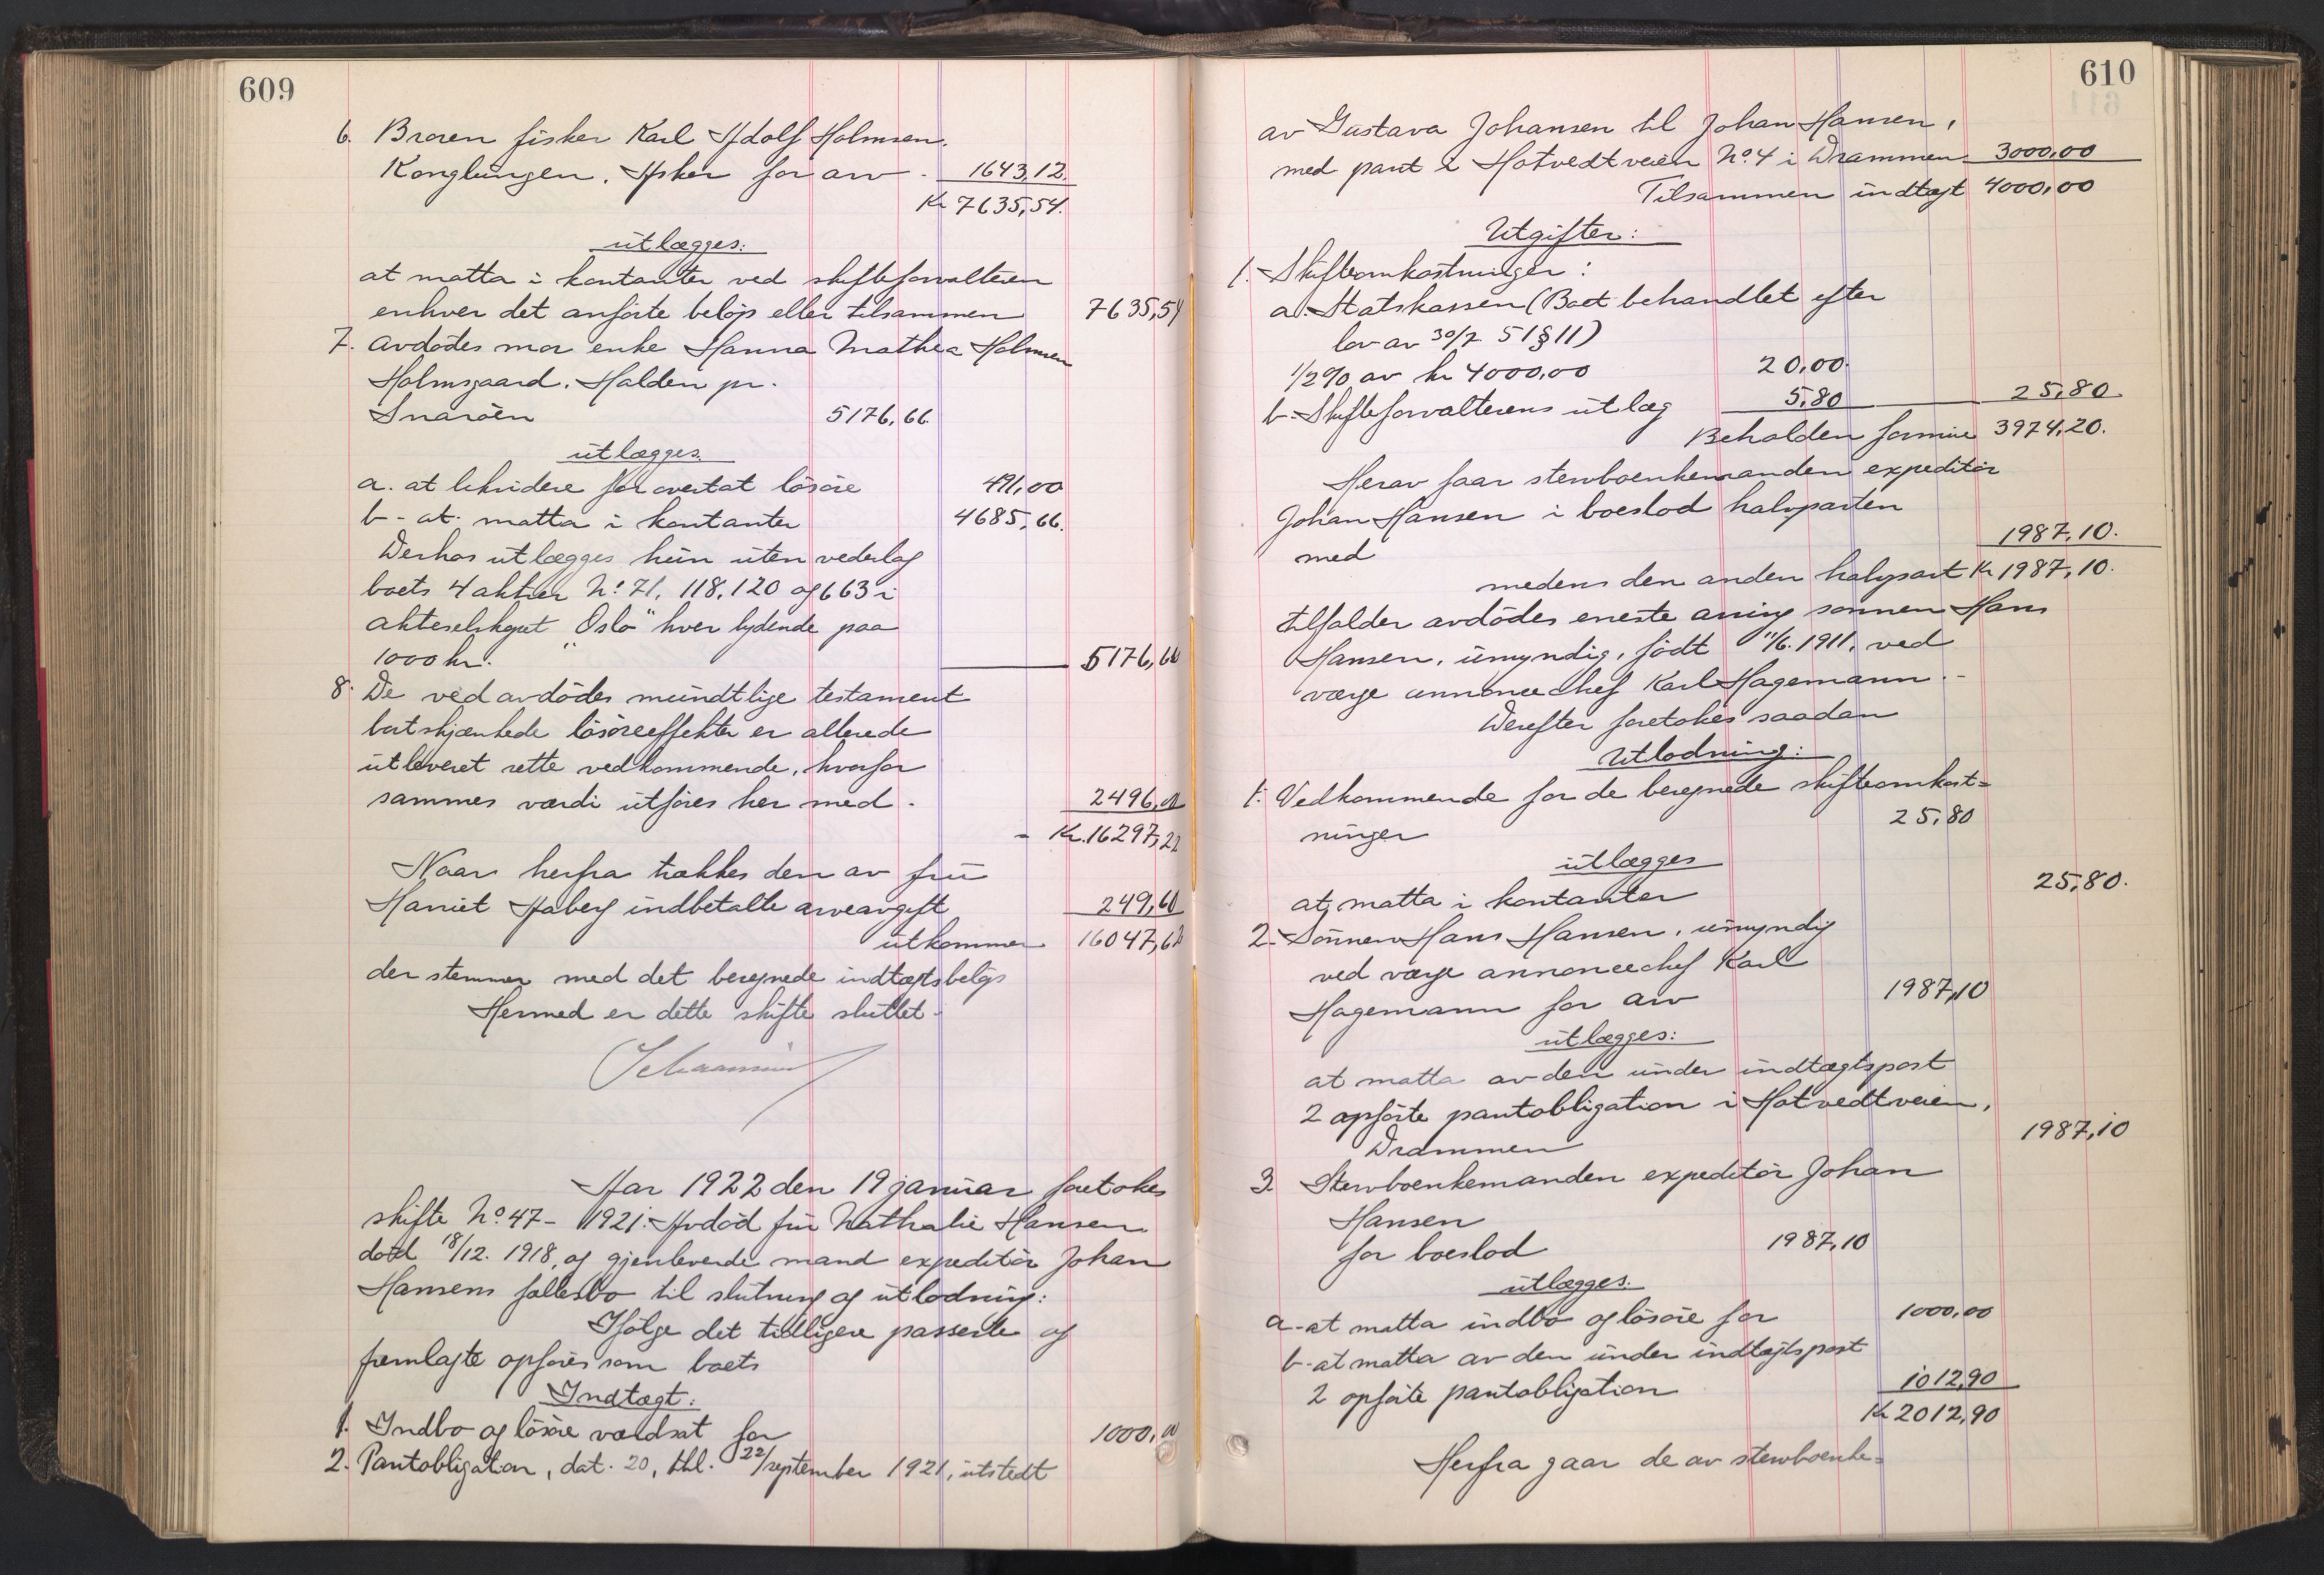 609
6. Broren fisker Karl Adolf Holmsen.
Konglungen. Asker for arv - 1643,12.
Kr 7635,54.
utlægges:
at motta i kontanter ved skifteforvalteren
enhver det anførte beløp eller tilsammen 7635,54
7. avdødes mor enke Hanna Mathea Holmsen
Holmsgaard. Halden pr.
Snarøen 5176,66.
utlægges.
a. at likvidere for overtat løsøre 491,00
b - at motta i kontanter 4685,66.
Derhos utlægges hun uten vederlag
boets 4 aktier No: 71, 118, 120 og 663 i
akteselskapet "Oslo" hver lydende paa
1000 kr. 5176,66
8. De ved avdødes mundtlige testament
bortskjænkede løsøreeffekter er allerede
utleveret rette vedkommende, hvorfor
sammes værdi utføres her med. 2496,00
- Kr. 16297,22
Naar herfra trækkes den av fru
Harriet Aaberg indbetalte arveavgift 249,60
utkommer 16047,62
der stemmer med det beregnede indtægtsbeløp
Hermed er dette skifte sluttet.
Aar 1922 den 19 januar foretokes
skifte No. 47 - 1921: Avdød fru Nathalie Hansen
død 18/12. 1918, og gjenlevende mand expeditør Johan
Hansens fællesbo til slutning og utlodning:
Ifølge det tidligere passerte og
fremlagte opføres som boets
Indtægt:
1. Indbo og løsøre værdsat for 1000,00
2. Pantobligation, dat. 20, thl. 22/september 1921, utstedt
610
av Gustava Johansen til Johan Hansen,
med pant i Hotvedtveien No. 4 i Drammen 3000,00
Tilsammen indtægt 4000,00
Utgifter:
1. Skifteomkostninger:
a. Statskassen (Boet behandlet efter
lov av 30/7 51 § 11)
1/2 % av kr 4000,00 20,00.
b. Skifteforvalterens utlæg 5,80 25,80.
Beholden formue 3974,20.
Herav faar stervboenkemanden expeditør
Johan Hansen i boeslod halvparten
med 1987,10.
medens den anden halvpart Kr 1987,10.
tilfalder avdødes eneste arving sønnen Hans
Hansen, umyndig, født 11/6. 1911, ved
værge annoncechef Karl Hagemann.-
Derefter foretokes saadan
Utlodning:
1. Vedkommende for de beregnede skifteomkost=
ninger 25,80
utlægges
at motta i kontanter 25,80.
2. Sønnen Hans Hansen, umyndig
ved værge annoncechef Karl
Hagemann for arv 1987,10
utlægges:
at motta av den under indtægtspost
2 opførte pantobligation i Hotvedtveien,
Drammen 1987,10
3. Stervboenkemanden expeditør Johan
Hansen
for boeslod 1987,10
utlægges.
a - at motta indbo og løsøre for 1000,00
b - at motta av den under indtægtspost
2 opførte pantobligation 1012,90
Kr 2012,90
Herfra gaar de av stervboenke=